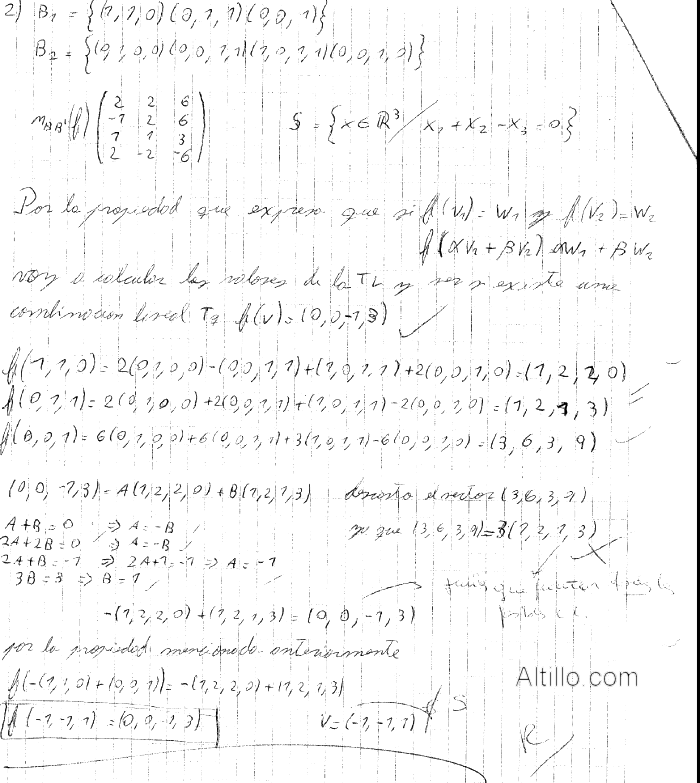 2) B₁ = {(1,1,0)(0,1,1)(0,0,1)}
B₂ = {(0,1,0,0)(0,0,1,1)(1,0,1,1)(0,0,1,0)}
m_BB'(f) ( 2 2 6
-1 2 6
1 1 3
2 -2 -6 )
S = {x ∈ R³ / x₁ + x₂ - x₃ = 0}
Por la propiedad que expresa que si f(v₁) = w₁ y f(v₂) = w₂
f(αv₂ + βv₂) αw₁ + βw₂
voy a calcular los valores de la TL y ver si existe una
combinacion lineal Tq f(v) = (0,0,-1,3)
f(1,1,0) = 2(0,1,0,0) - (0,0,1,1) + (1,0,1,1) + 2(0,0,1,0) = (1,2,2,0)
f(0,1,1) = 2(0,1,0,0) + 2(0,0,1,1) + (1,0,1,1) - 2(0,0,1,0) = (1,2,1,3)
f(0,0,1) = 6(0,1,0,0) + 6(0,0,1,1) + 3(1,0,1,1) - 6(0,0,1,0) = (3,6,3,9)
(0,0,-1,3) = A(1,2,2,0) + B(1,2,1,3) descarto el vector (3,6,3,9)
A + B = 0 ⇒ A = -B
ya que (3,6,3,9) = 3(1,2,1,3)
2A + 2B = 0 ⇒ A = -B
2A + B = -1 ⇒ 2A + 1 = -1 ⇒ A = -1
3B = 3 ⇒ B = 1
-(1,2,2,0) + (1,2,1,3) = (0,0,-1,3)
por la propiedad mencionada anteriormente
f(-(1,1,0) + (0,0,1)) = -(1,2,2,0) + (1,2,1,3)
f(-1,-1,1) = (0,0,-1,3)
v = (-1,-1,1) ∉ S
R
Altillo.com